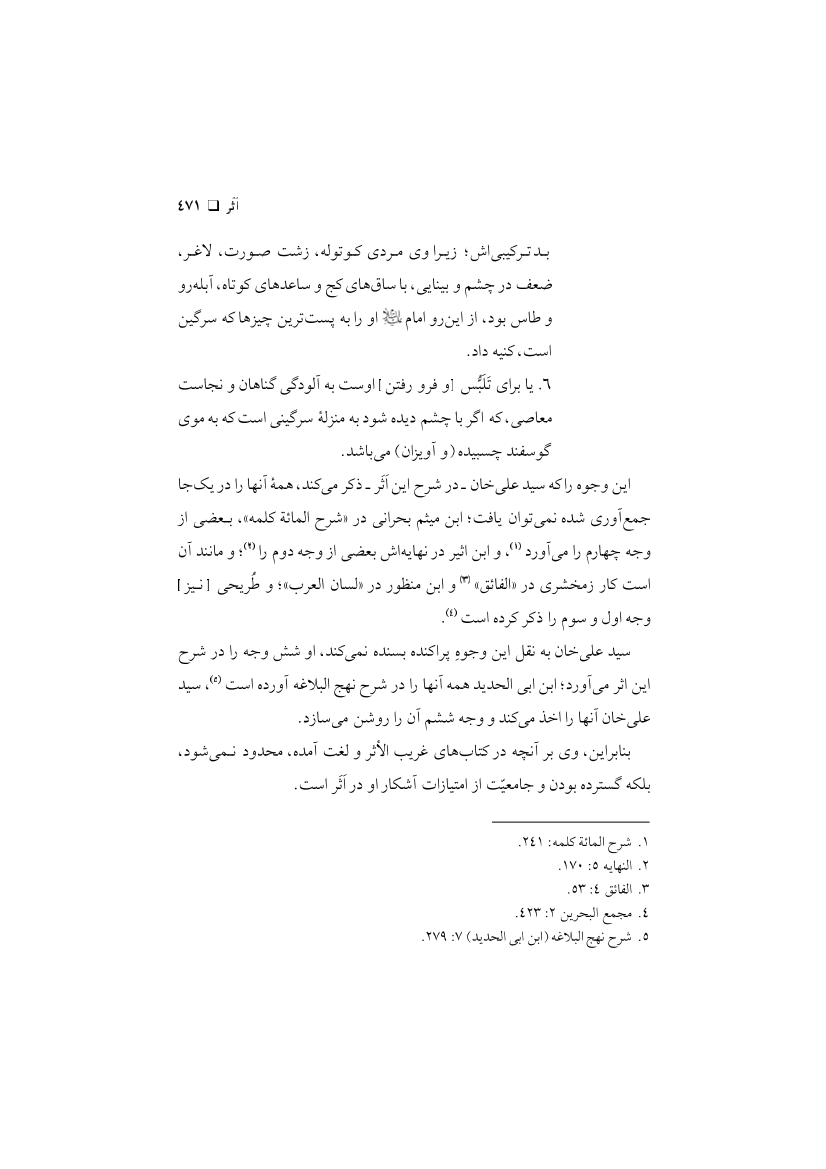 اَثَر ❏ ٤٧١
بـد تـرکیبی‌اش؛ زیـرا وی مـردی کـوتوله، زشت صـورت، لاغـر،
ضعف در چشم و بینایی، با ساق‌های کج و ساعدهای کوتاه، آبله‌رو
و طاس بود، از این‌رو امام علیه السلام او را به پست‌ترین چیزها که سرگین
است، کنیه داد.
٦. یا برای تَلَبُّس [و فرو رفتن] اوست به آلودگی گناهان و نجاست
معاصی، که اگر با چشم دیده شود به منزلهٔ سرگینی است که به موی
گوسفند چسبیده (و آویزان) می‌باشد.
این وجوه را که سید علی‌خان ـ در شرح این اَثَر ـ ذکر می‌کند، همهٔ آنها را در یک‌جا
جمع‌آوری شده نمی‌توان یافت؛ ابن میثم بحرانی در «شرح المائة کلمه»، بـعضی از
وجه چهارم را می‌آورد (١)، و ابن اثیر در نهایه‌اش بعضی از وجه دوم را (٢)؛ و مانند آن
است کار زمخشری در «الفائق» (٣) و ابن منظور در «لسان العرب»؛ و طُریحی [نـیز]
وجه اول و سوم را ذکر کرده است (٤).
سید علی‌خان به نقل این وجوهِ پراکنده بسنده نمی‌کند، او شش وجه را در شرح
این اثر می‌آورد؛ ابن ابی الحدید همه آنها را در شرح نهج البلاغه آورده است (٥)، سید
علی‌خان آنها را اخذ می‌کند و وجه ششم آن را روشن می‌سازد.
بنابراین، وی بر آنچه در کتاب‌های غریب الأثر و لغت آمده، محدود نـمی‌شود،
بلکه گسترده بودن و جامعیّت از امتیازات آشکار او در اَثَر است.
١. شرح المائة کلمه: ٢٤١.
٢. النهایه ٥: ١٧٠.
٣. الفائق ٤: ٥٣.
٤. مجمع البحرین ٢: ٤٢٣.
٥. شرح نهج البلاغه (ابن ابی الحدید) ٧: ٢٧٩.